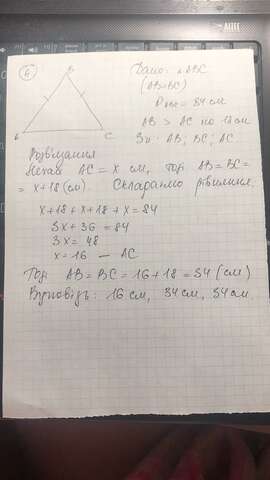 ④
B
A
C
Дано: △ABC
(AB=BC)
P△ABC = 84 см
AB > AC на 18 см
Зн: AB; BC; AC
Розв'язання
Нехай AC = x см, тоді AB = BC =
= x+18 (см). Складаємо рівняння.
x+18+x+18+x=84
3x+36=84
3x=48
x=16 — AC
Тоді AB=BC=16+18=34 (см)
Відповідь: 16 см, 34 см, 34 см.